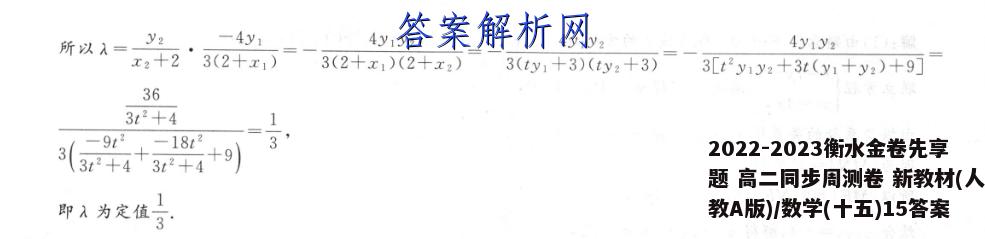 答案解析网
所以λ=\frac{y_2}{x_2+2}·\frac{-4y_1}{3(2+x_1)}=-\frac{4y_1y_2}{3(2+x_1)(2+x_2)}=-\frac{4y_1y_2}{3(ty_1+3)(ty_2+3)}=-\frac{4y_1y_2}{3[t^2y_1y_2+3t(y_1+y_2)+9]}=
\frac{\frac{36}{3t^2+4}}{3(\frac{-9t^2}{3t^2+4}+\frac{-18t^2}{3t^2+4}+9)}=\frac{1}{3},
即λ为定值\frac{1}{3}.
2022-2023衡水金卷先享
题 高二同步周测卷 新教材(人
教A版)/数学(十五)15答案